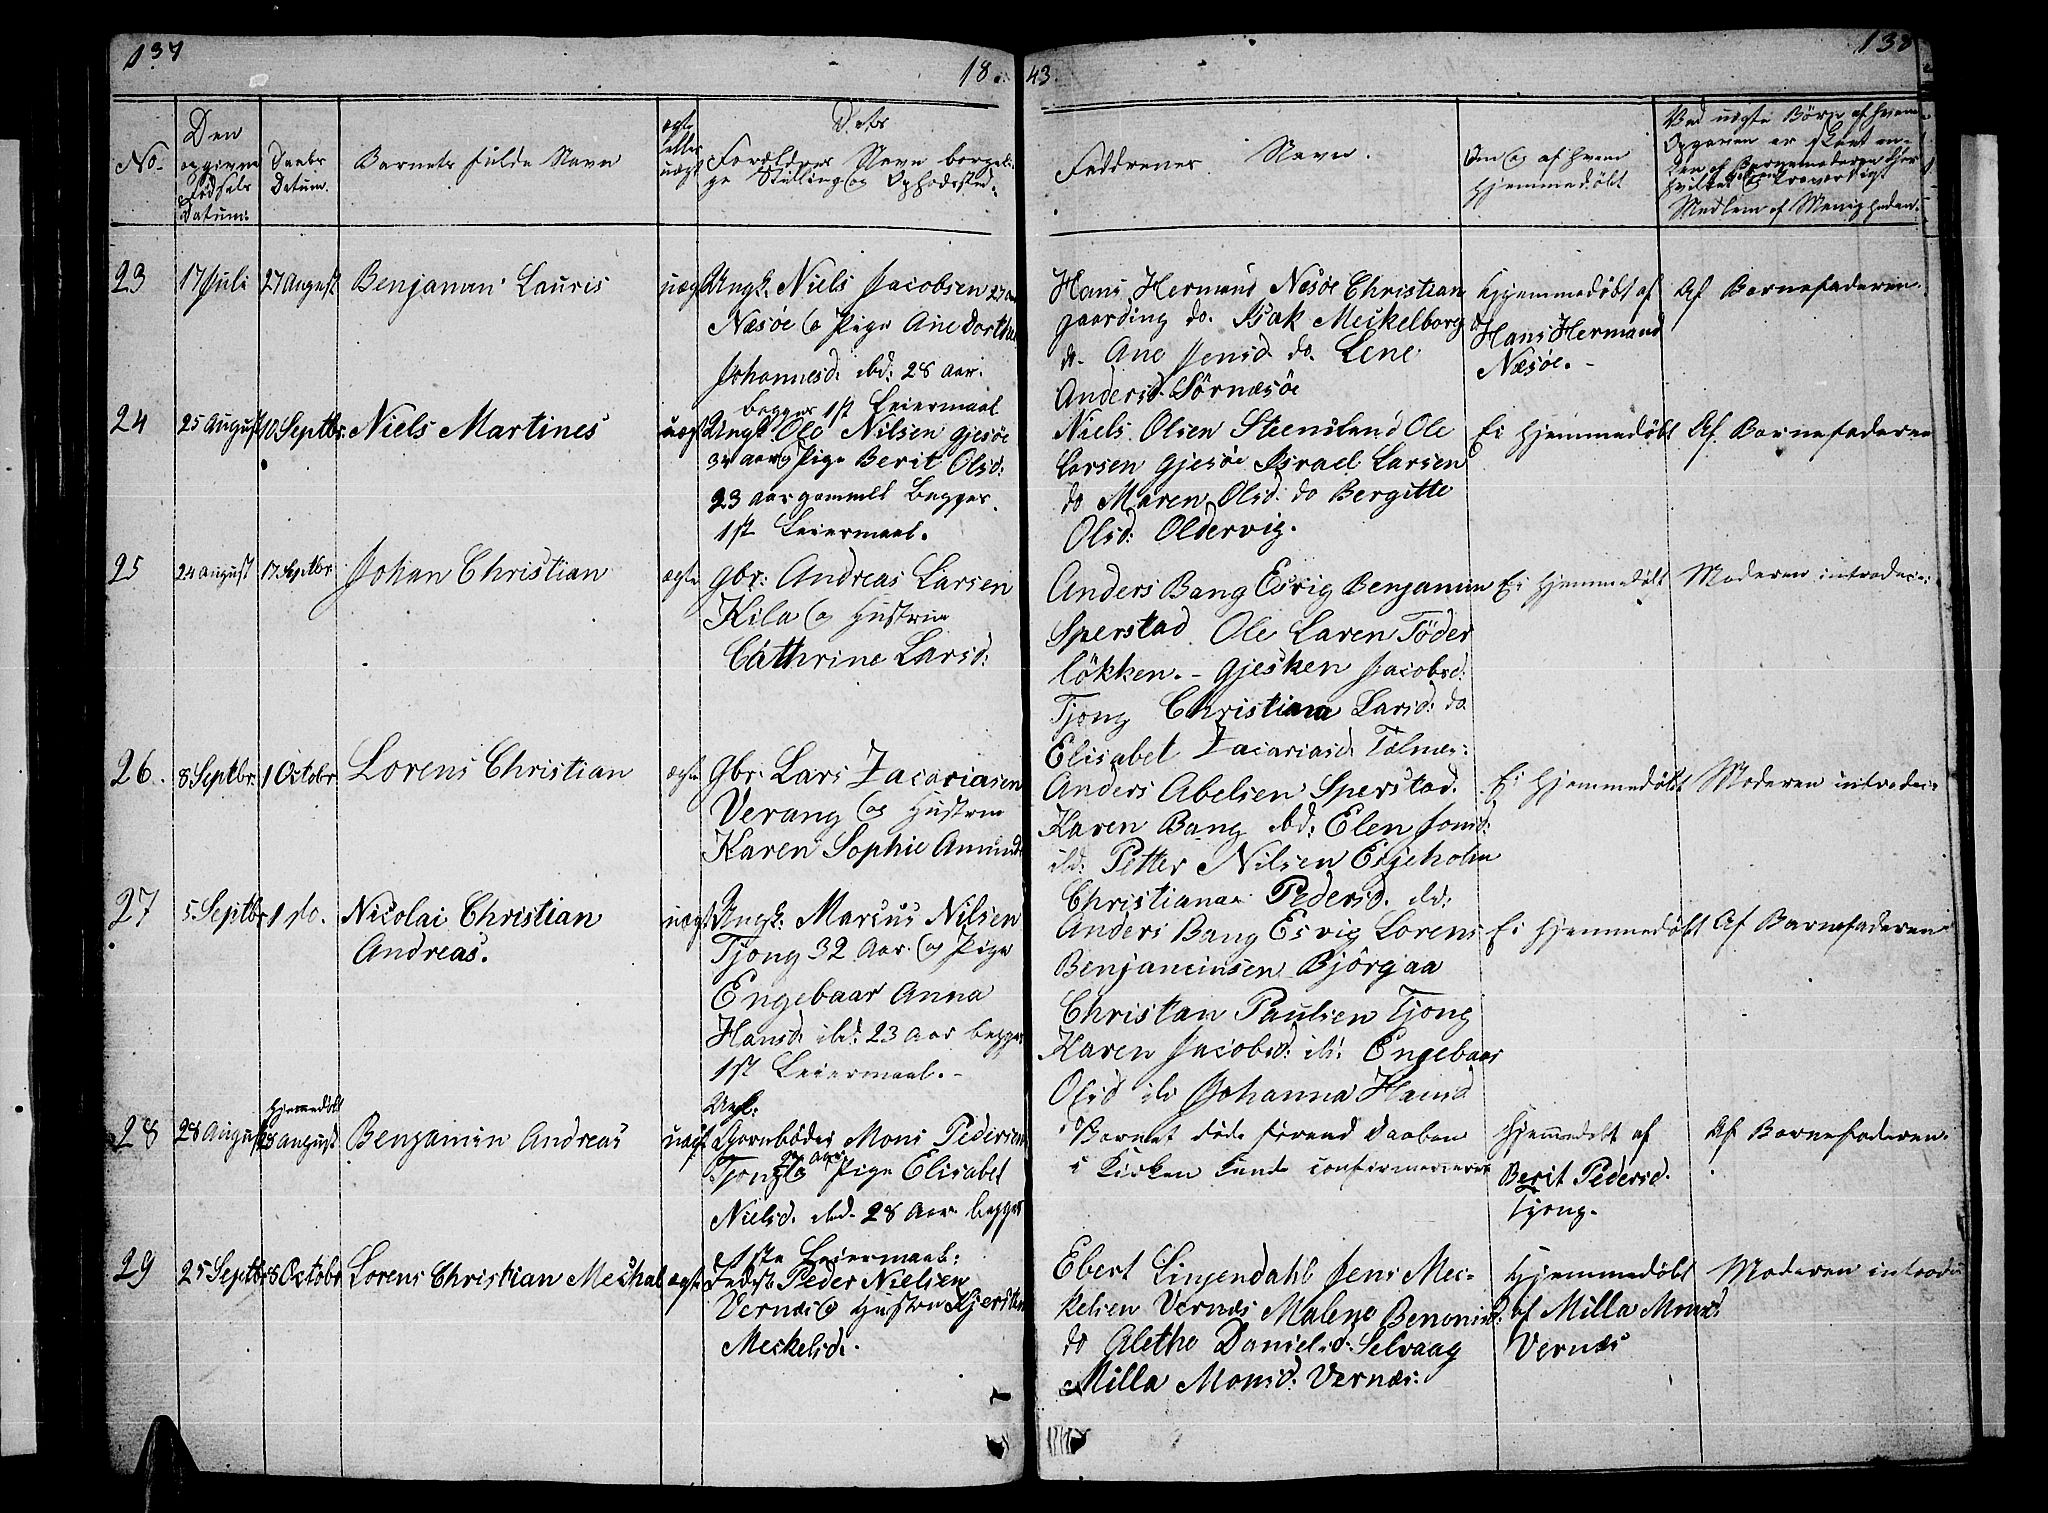 137
18
43.
138
No.
Den opgivne Fødsels Datum.
Daabs Datum.
Barnets fulde Navn
ægte eller uægte
Dets Forældres Navn borgelige Stilling og Opholdsted.
Faddrenes Navn.
Om og af hvem hjemmedøbt
Ved uægte Børn af hvem Opgaven er skeet
Medlem af Menigheden.
23
17 Juli
27 August
Benjamin Lauris
uægt
Ungk. Niels Jacobsen
Næsöe og Pige Ane Dorthea
Johannesd. ibd: 28 Aar.
begges 1st Leiermaal
Hans Hermand Næsöe Christian
gaarding do. Isak Meckelborg
do. Ane Jensd. do. Lene
Andersd. Sörnæsöe
Hjemmedøbt af
Hans Hermand
Næsöe.
Af Barnefaderen.
24
25 August
10 Septbr.
Niels Martines
uægt
Ungk Ole Nilsen Gjesöe
34 Aar og Pige Berit Olsd:
23 Aar gammelt begges
1st Leiermaal.
Niels Olsen Steensland Ole
Larsen Gjesöe Israel Larsen
do Maren Olsd. do Bergitte
Olsd: Oldervig.
Ei Hjemmedøbt
Af Barnefaderen
25
24 August
17 Septbr
Johan Christian
ægte
Gbr: Andreas Larsen
Kila og Hustrue
Cathrine Larsd:
Anders Bang Esvig Benjamin
Sperstad Ole Laren Töder
lökken. - Gjesken Jacobsd:
Tjong Christiana Larsd: do
Elisabet Zacariasd.
Ei Hjemmedøbt
Moderen introduc:
26.
8 Septbr
1 Octobr
Lorens Christian
ægte
Gbr: Lars Zacariasen
Verang og Hustrue
Karen Sophie Amunds
Anders Abelsen Sperstad.
Karen Bang ibd: Elen Jonsd:
ibd: Petter Nilsen Esjeholm
Christiana Pedersd. ibd:
Ei Hjemmedøbt
Moderen introduc:
27
5 Septbr
1 do.
Nicolai Christian
Andreas.
uægt
Ungk: Marcus Nilsen
Tjong 32 Aar og Pige
Engebaar Anna
Hansd. ibd: 23 Aar begges
1st Leiermaal. -
Anders Bang Esvig Lorens
Benjaminsen Björgaa
Christan Paulsen Tjong
Karen Jacobsd: ib: Engebaar
Olsd ib Johanna Hansd
Ei Hjemmedøbt
Af Barnefaderen
28
28 August
Hjemmedøbt
28 August
Benjamin Andreas
uægt
Ungk:
Mons Pedersen
Tjong og Pige Elisabet
Nielsd. ibd. 28 Aar begges
1ste Leiermaal:
Barnet döde förend Daaben
i Kirken kunde confirmeres
Hjemmedøbt af
Berit Pedersd.
Tjong.
Af Barnefaderen.
29
25 Septbr
8 Octobr
Lorens Christian Mechal
ægte
Inderst Peder Nielsen
Vernæs og Hustrue Kjersten
Meckelsd.
Ebert Lingendahl Jens Mec-
kelsen Vernæs Malene Benonisd:
do Aletha Danielsd: Selvaag
Milla Monsd: Vernæs:
Hjemmedøbt
af Milla Monsd
Vernæs
Moderen introdu